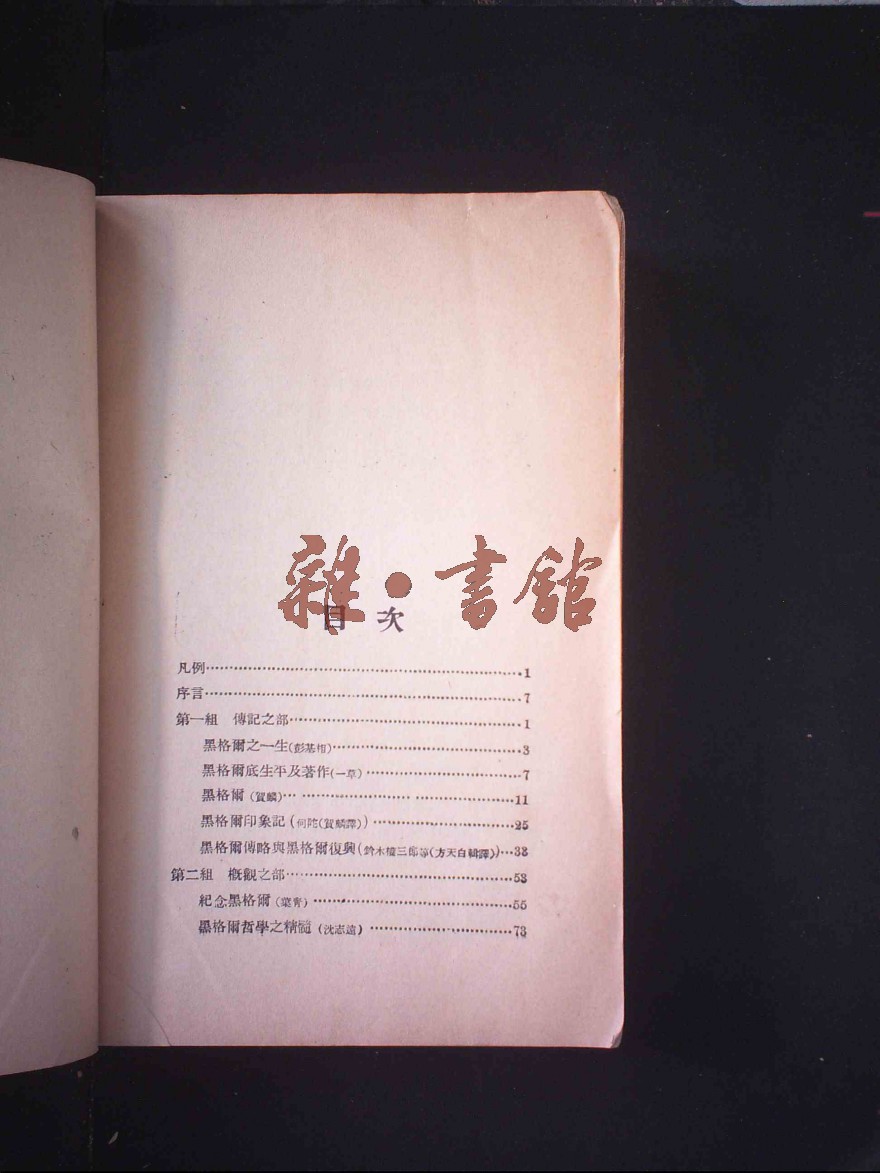 雜·書館
目次
凡例……1
序言……7
第一組 傳記之部……1
黑格爾之一生(彭基相)……3
黑格爾底生平及著作(一草)……7
黑格爾(賀麟)……11
黑格爾印象記(何陀(賀麟譯))……25
黑格爾傳略與黑格爾復興(鈴木權三郎等(方天白輯譯))……33
第二組 概觀之部……53
紀念黑格爾(葉青)……55
黑格爾哲學之精髓(沈志遠)……73